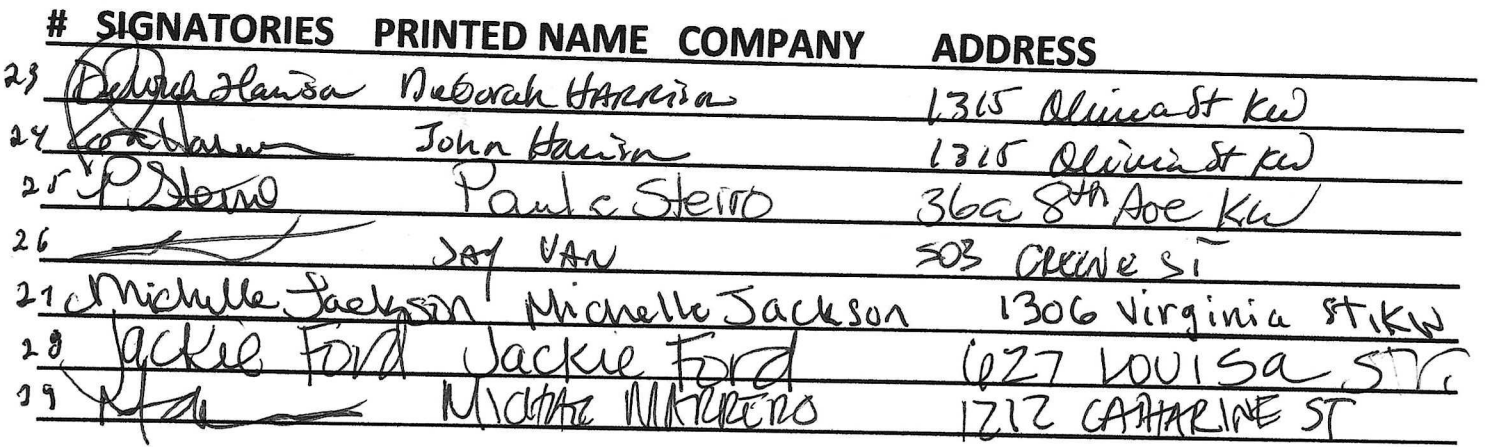 # SIGNATORIES PRINTED NAME COMPANY ADDRESS
23 Deborah Harrison Deborah HARRison 1315 Olivia St KW
24 John Harrison 1315 Olivia St KW
25 P Steiro Paula Steiro 36a 8th Ave KW
26 JAY VAN 503 GREENE ST
27 Michelle Jackson Michelle Jackson 1306 Virginia St, KW
28 Jackie Ford Jackie Ford 627 LOUISa ST.
29 MARRERO 1212 CATHARINE ST